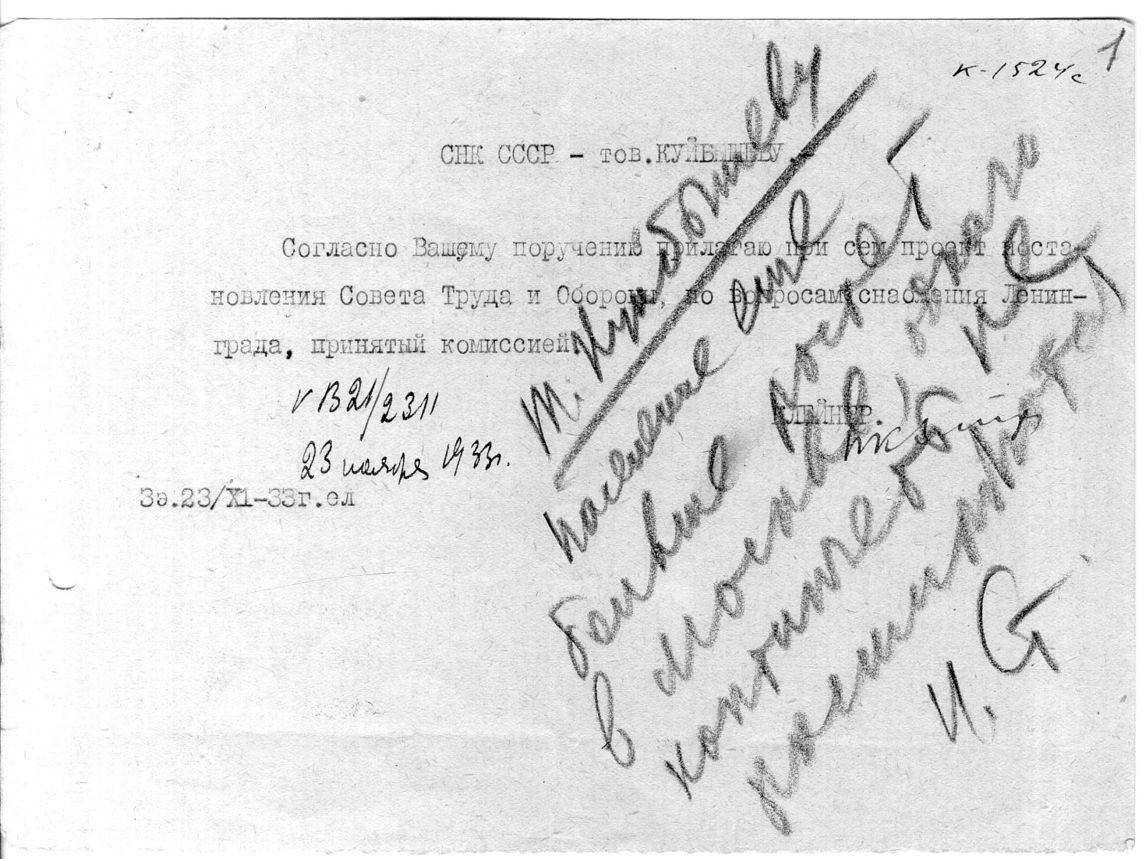 1
К-1524с
СНК СССР - тов.КУЙБЫШЕВУ.
Согласно Вашему поручению прилагаю при сем проект поста-
новления Совета Труда и Обороны, по вопросам снабжения Ленин-
града, принятый комиссией.
КЛЕЙНЕР.
В21/2311
23 ноября 1933г.
3э.23/X1-33г.ел
Т. Куйбышеву
Население еще
больше растет
в Москве, однако
не
И. Ст.